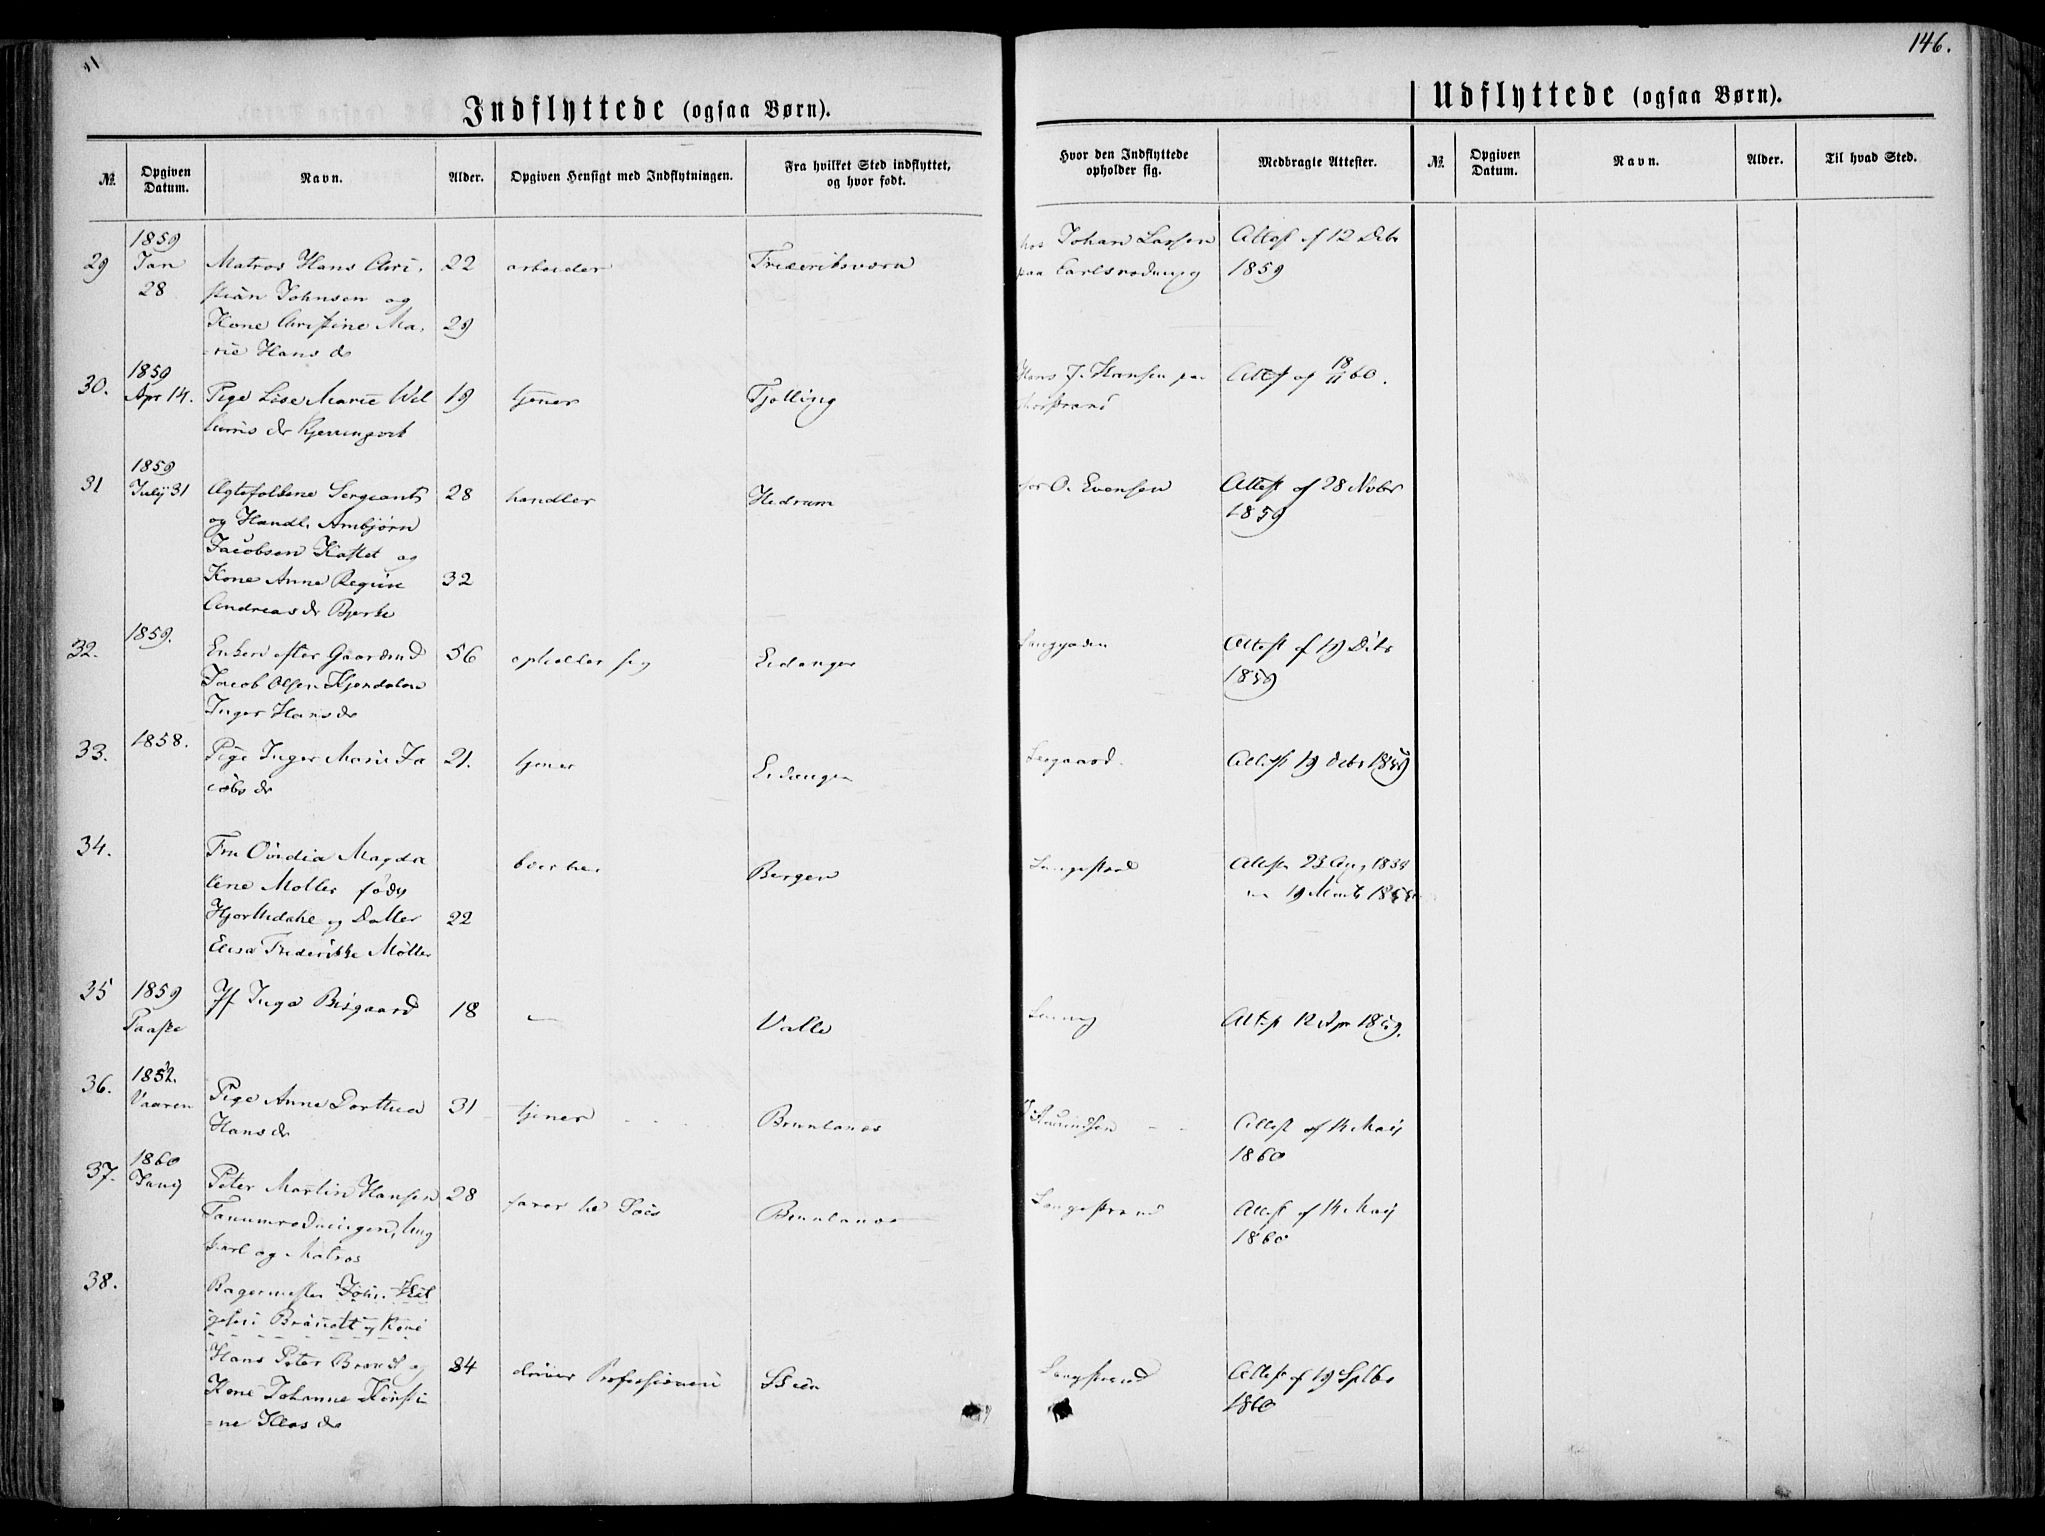 146.
Indflyttede (ogsaa Børn).
Udflyttede (ogsaa Børn).
№. Opgiven Datum. Navn. Alder. Opgiven Hensigt med Indflytningen. Fra hvilket Sted indflyttet, og hvor født. Hvor den Indflyttede opholder sig. Medbragte Attester. №. Opgiven Datum. Navn. Alder. Til hvad Sted.
1859 hos Johan Larsen Attest af 12 Debr
29 Jan Matros Hans Chri- 22 arbeider Frederiksværn paa 1859
28 stian Johnsen og
Kone Christine Ma- 29
rie Hans dr
1859
30. Apr 14. Pige Lise Marie Wil 19 tjener Tjølling Hans J. Hansen paa Attest af 18/11 60.
hums dr
1859
31 July 31 Ægtefolkene Sergeant 28 handler Hedrum hos O. Evensen Attest af 28 Nvbr
og Handl. Ambjørn 1859
Jacobsen og
Kone Anne Regine 32
Andreas dr Bjerke
32. 1859. Enken efter Gaardmd 56 opholder sig Eidanger Langgaden Attest af 19 Debr
Jacob Olsen 1859
Inger Hans dr
33. 1858. Pige Inger Marie Ja 21. tjener Eidanger Attest 19 debr 1859
cobs dr
34. Fru Magda boer her Bergen Langestrand Attester 23 Aug 1858
lene Møller født 19
Hjorthdahl og Datter 22
Elisa Frederikke Møller
35 1859 Jf Inga Bisgaard 18 — Valle Attest 12 Apr 1859.
Paaske
36. 1852. Pige Anne Dorthea 31 tjener Brunlanes Amundsen Attest af 14 Maij
Vaaren Hans dr 1860
37. 1860 Peter Martin Hansen 28 farer til Søes Brunlanes Langestrand Attest af 14 Maij
Tanumrødningen, Ung 1860
karl og Matros
38. Bagermester
Brandt og Kone
Hans Peter Brandt og 34 driver Professionen Skien Langestrand Attest af 19 Sptbr
Kone Johanne Kirsti 1860
ne Klas dr